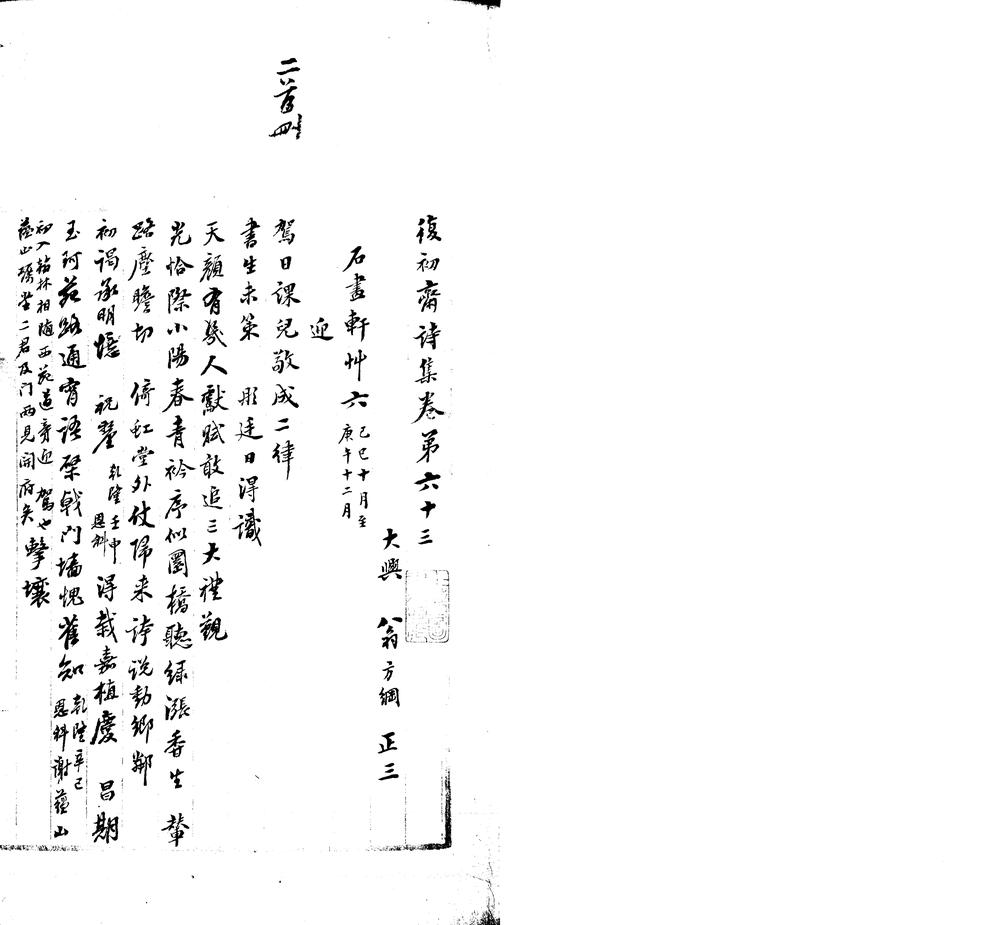 二首删
復初齋詩集卷第六十三
大興 翁方綱 正三
石畫軒艸六 己巳十月至庚午十二月
迎
駕日課兒敬成二律
書生未策 彤廷日淂識
天顏有幾人獻賦敢追三大禮觀
光恰際小陽春青衿序似圜橋聽綠漲香生 輦
路塵瞻切 倚虹堂外仗歸来詩说動鄉鄰
初謁承明憶 祝釐 乾隆壬申恩科 淂栽嘉植慶 昌期
玉珂苑路通宵語棨戟門墻愧雀知 乾隆辛巳恩科謝蕴山
初入翰林相随西苑道旁迎 駕也 擊壤
蕴山 二君及门两見開府矣